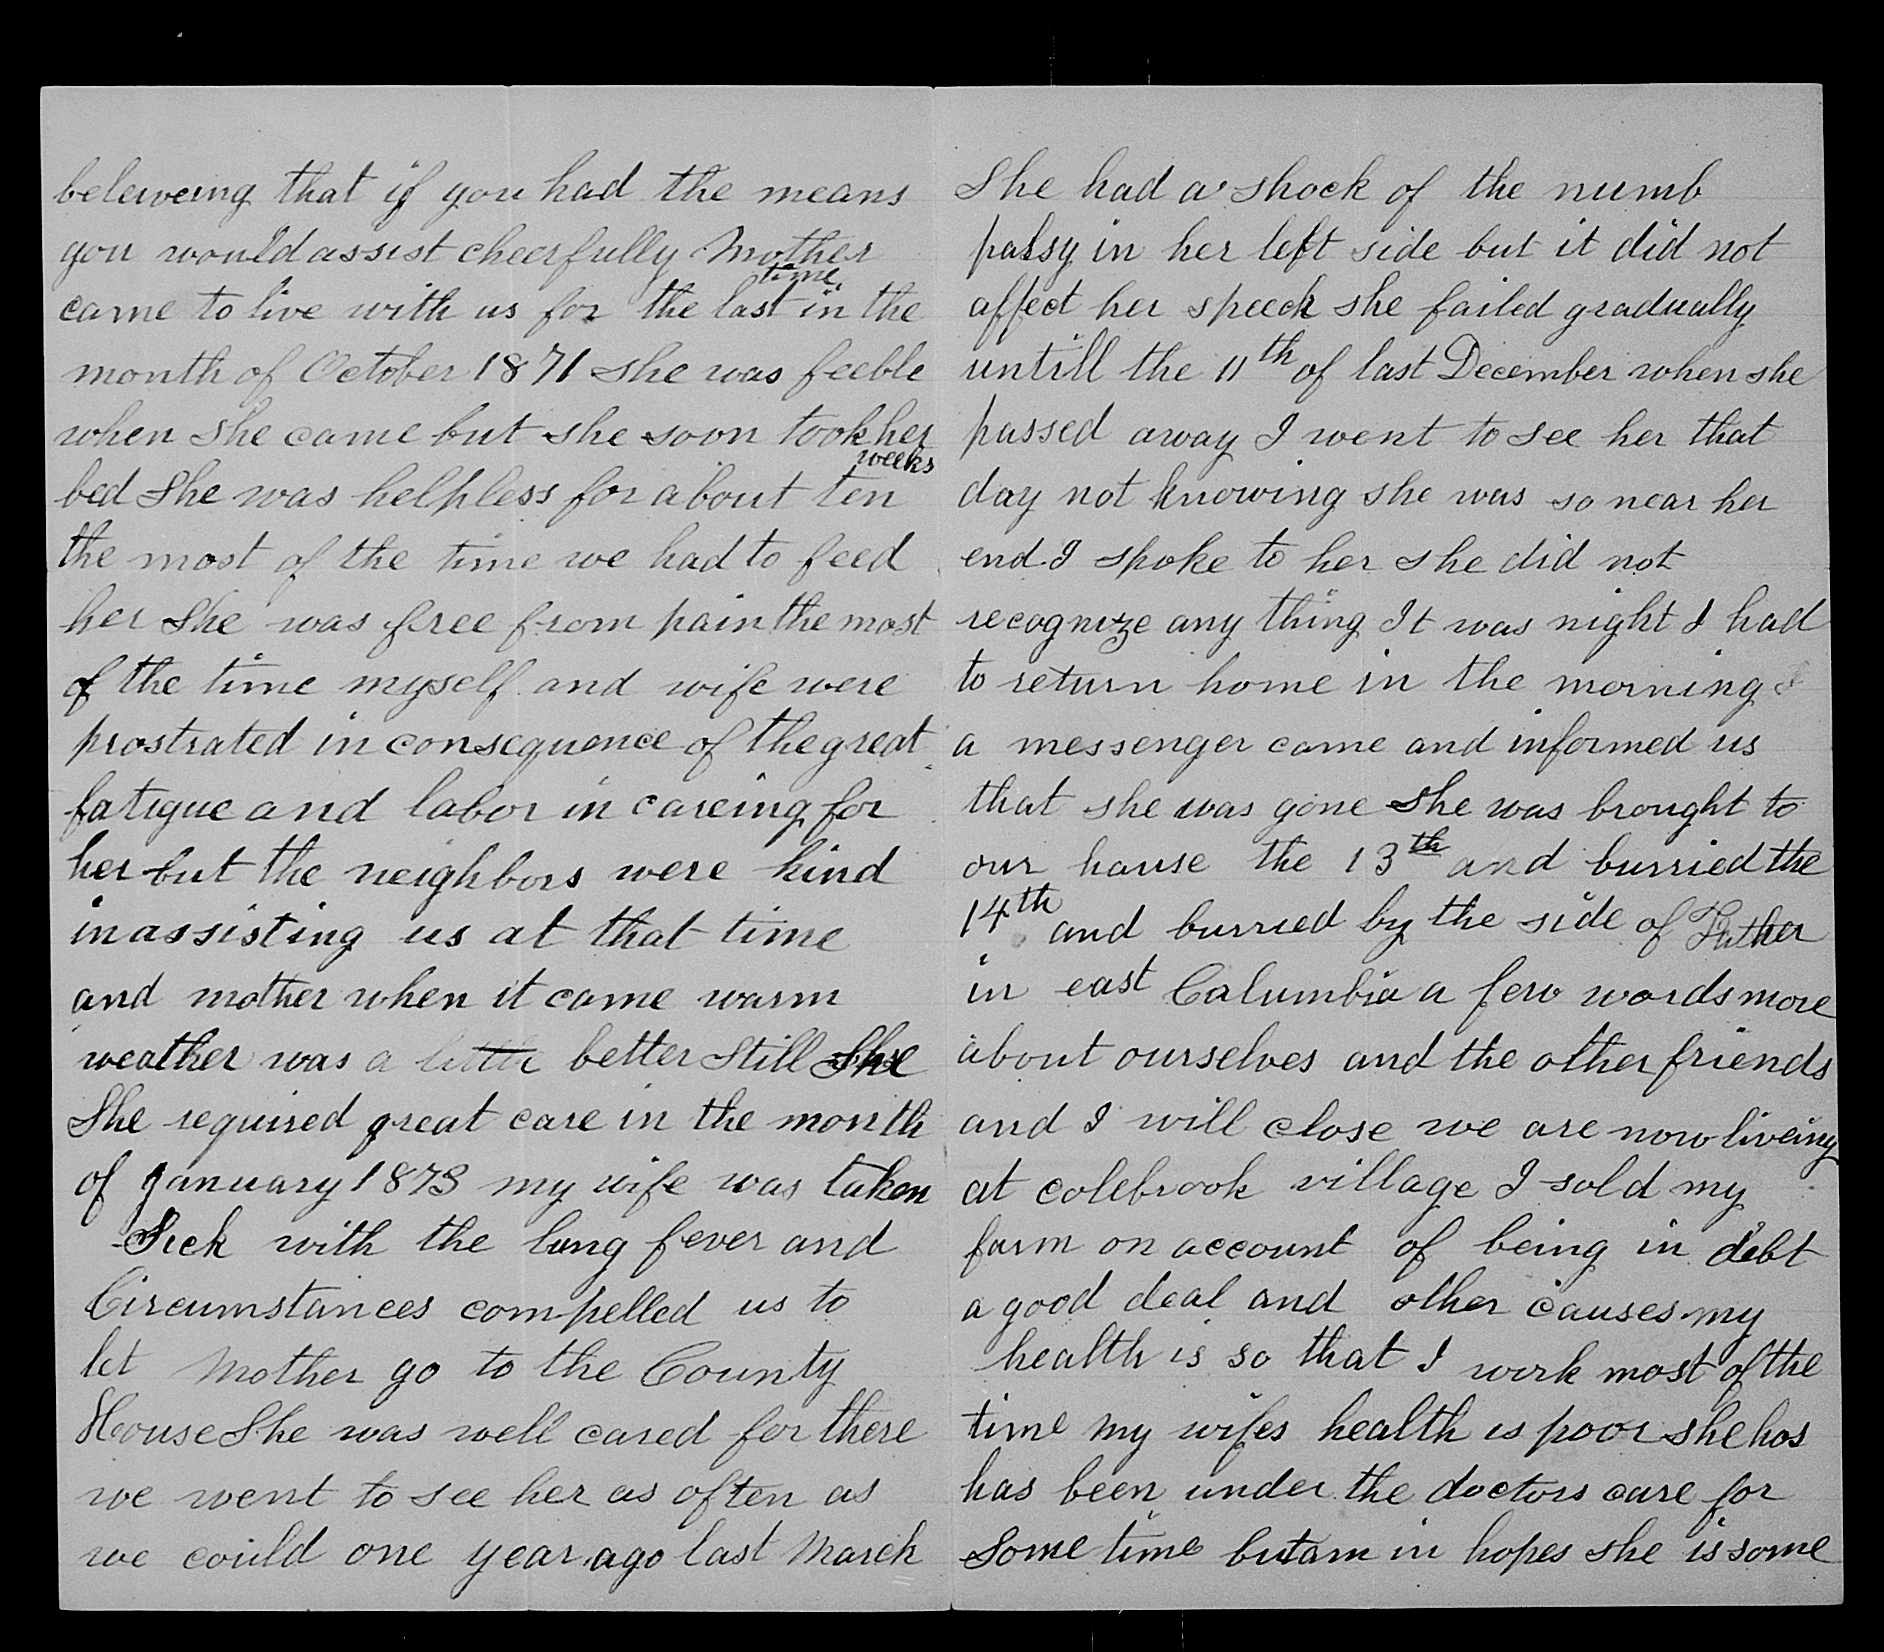 beleiveing that if you had the means
you would assist cheerfully Mother
came to live with us for the last time in the
month of October 1871 she was feeble
when she came but she soon took her
bed She was helpless for about ten weeks
the most of the time we had to feed
her She was free from pain the most
of the time myself and wife were
prostrated in consequence of the great
fatigue and labor in careing for
her but the neighbors were kind
in assisting us at that time
and mother when it came warm
weather was a little better Still She
She required great care in the month
of January 1873 my wife was taken
Sick with the lung fever and
Circumstances compelled us to
let Mother go to the County
House She was well cared for there
we went to see her as often as
we could one year ago last March
She had a shock of the numb
palsy in her left side but it did not
affect her speech she failed gradually
untill the 11th of last December when she
passed away I went to see her that
day not knowing she was so near her
end I spoke to her she did not
recognize any thing It was night I had
to return home in the morning
a messenger came and informed us
that she was gone She was brought to
our house the 13th and burried the
14th and burried by the side of Father
in east Calumbia a few words more
about ourselves and the other friends
and I will close we are now liveing
at colebrook village I sold my
farm on account of being in debt
a good deal and other causes my
health is so that I work most of the
time my wifes health is poor she has
has been under the doctors care for
Some time but am in hopes she is some